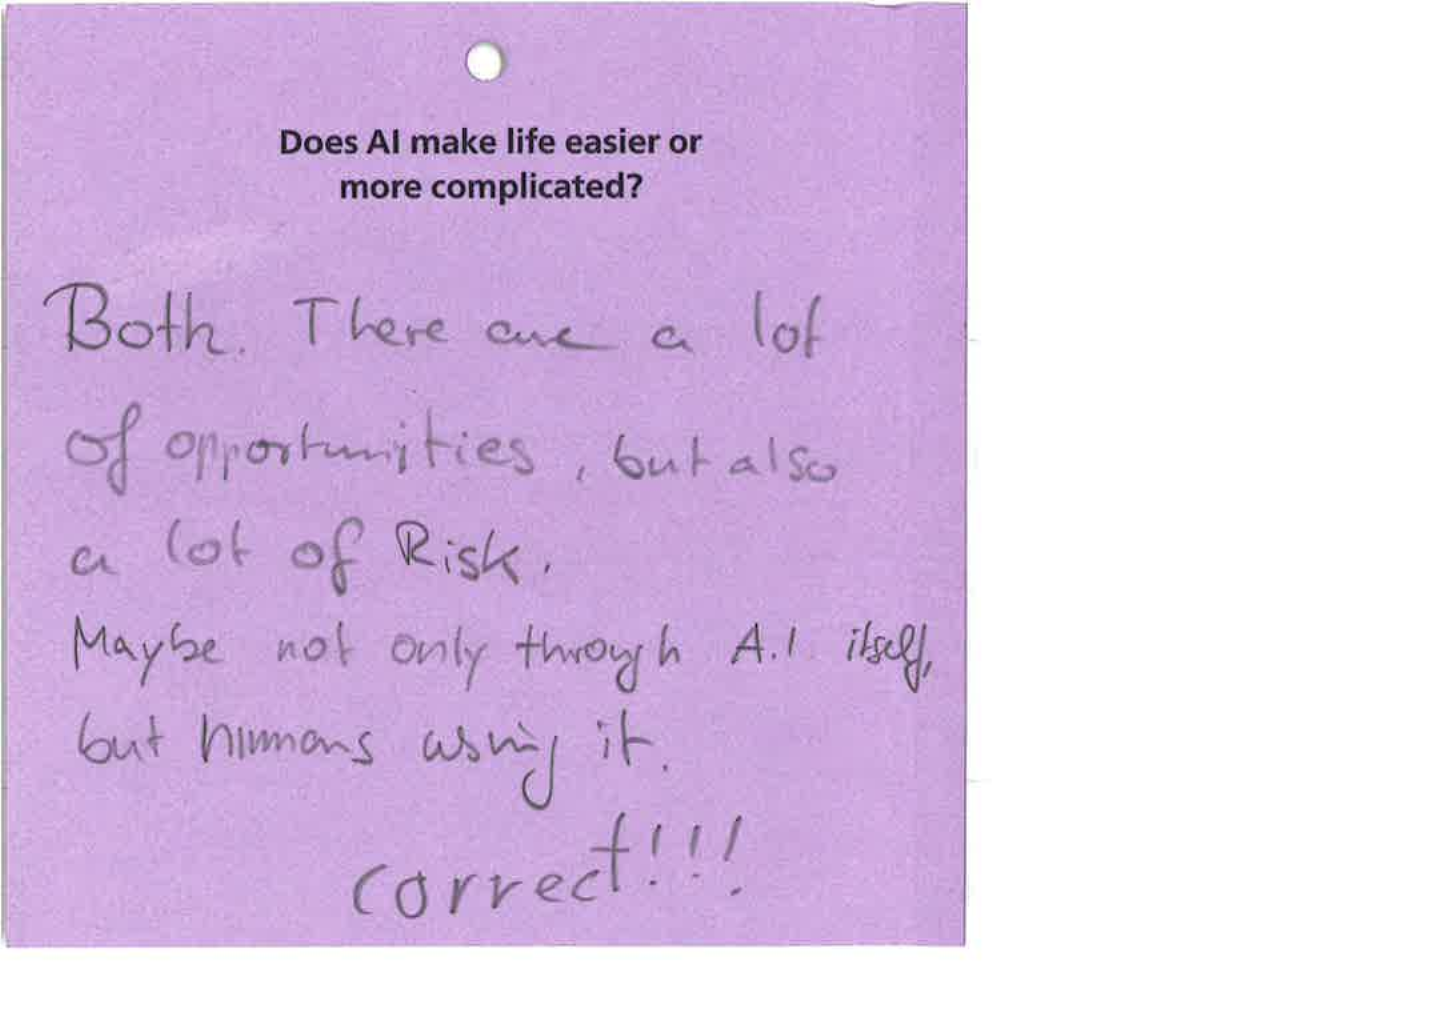 Does AI make life easier or
more complicated?
Both. There are a lot
of opportunities, but also
a lot of Risk.
Maybe not only through A.I itself,
but humans using it.
correct!!!